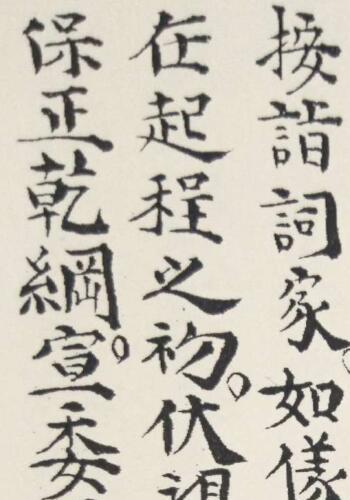 按詣詞家。如
在起程之初。伏
保正乾綱。宣委